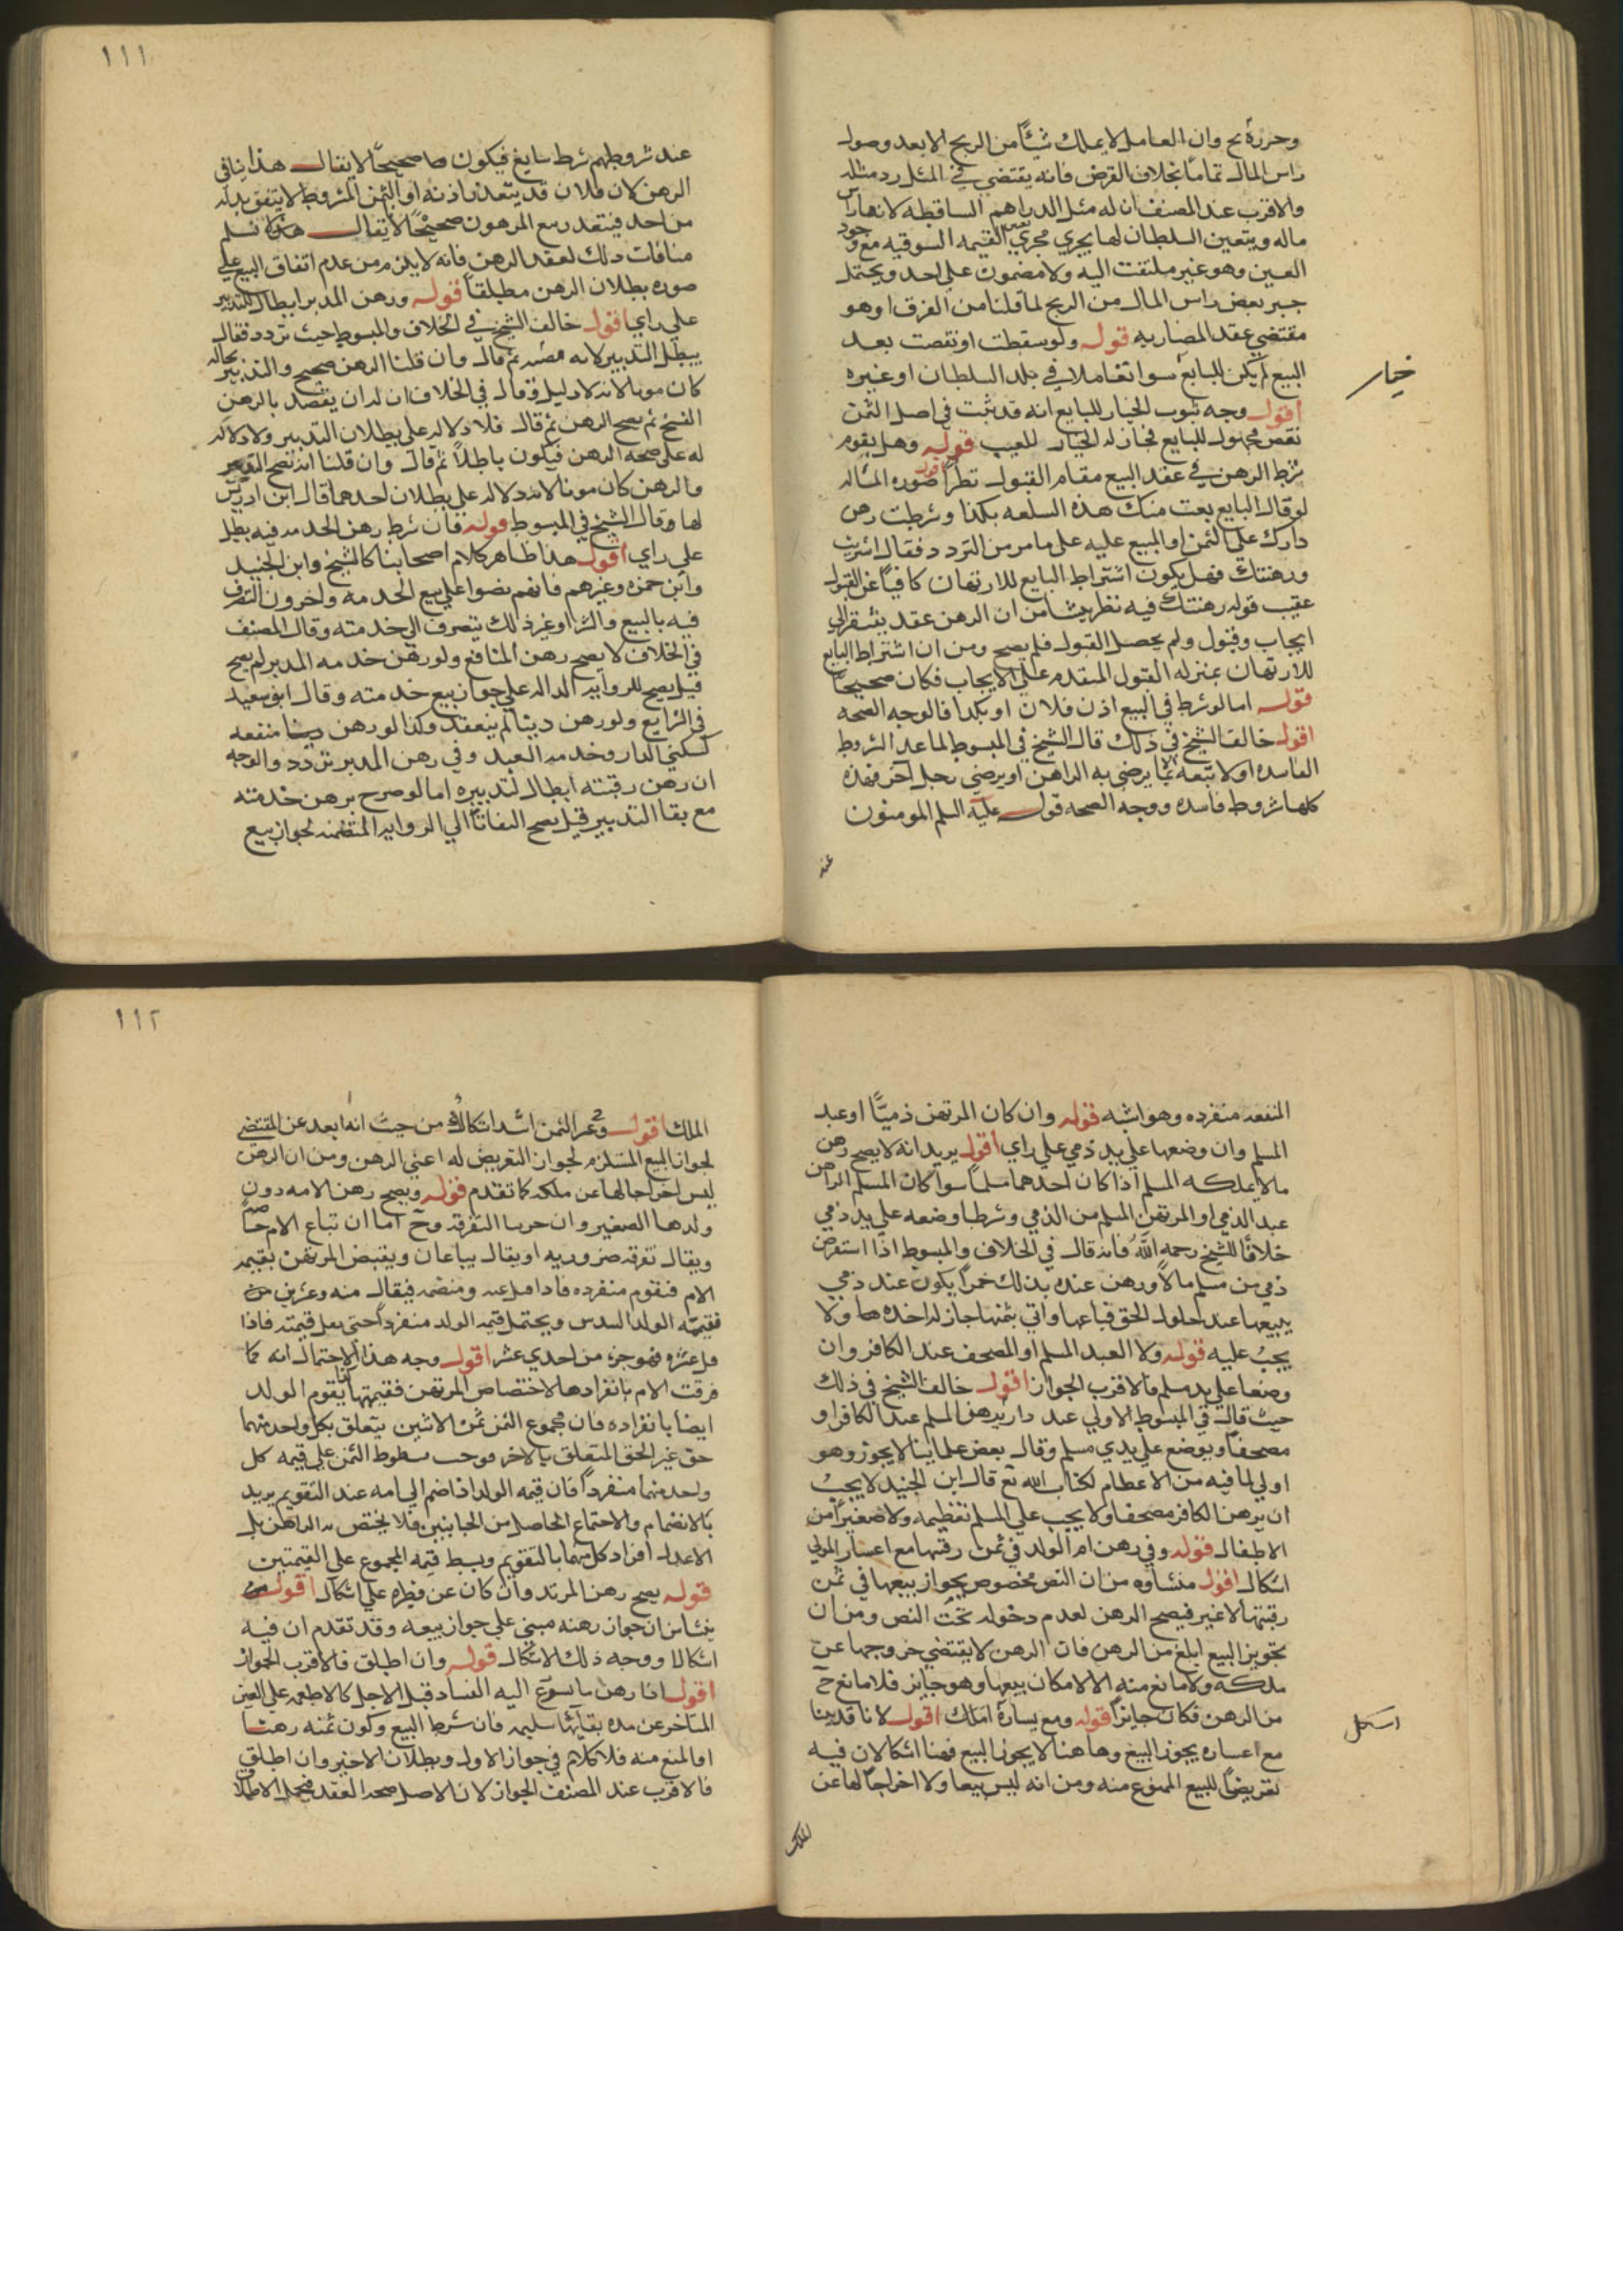 وحرره ح وان العامل لا يملك شيئا من الربح الا بعد وصول
راس المال تماما بخلاف القرض فانه يقتضي في المثل رد مثله
والاقرب عند المصنف ان له مثل الدراهم الساقطة لانها راس
ماله ويتعين السلطان لها يجري مجري نقص القيمه السوقيه مع وجود
العين وهو غير ملتفت اليه ولا مضمون علي احد ويحتمل
جبر بعض راس المال من الربح لما قلنا من الفرق او هو
مقتضي عقد المضاربه قوله ولو سقطت او نقصت بعد
البيع لم يكن للبايع سوا تعاملا في بلد السلطان او غيره
خيار
اقول وجه ثبوت الخيار للبايع انه قد ثبت في اصل الثمن
نقص مجهول للبايع فجاز له الخيار للعيب قوله وهل يقوم
شرط الرهن في عقد البيع مقام القبول نظر اقول صوره المساله
لو قال البايع بعت منك هذه السلعه بكذا وشرطت رهن
دارك علي الثمن او المبيع عليه علي ما مر من التردد فقال اشتريت
ورهنتك فهل يكون اشتراط البايع للارتهان كافيا عن القبول
عقيب قوله رهنتك فيه نظر ينشا من ان الرهن عقد يفتقر الي
ايجاب وقبول ولم يحصل القبول فلم يصح ومن ان اشتراط البايع
للارتهان بمنزله القبول المتقدم علي الايجاب فكان صحيحا
قوله اما لو شرط في البيع اذن فلان او بكذا فالوجه الصحه
اقول خالف الشيخ في ذلك قال الشيخ في المبسوط لما عد الشروط
الفاسده او لا تبعه الا بما يرضي به الراهن او يرضي رجل آخر فهذه
كلها شروط فاسده ووجه الصحه قوله عليه السلم المومنون
عند
١١١
عند شروطهم شرط سايغ فيكون صحيحا لا يقال هذا ينافي
الرهن لان فلان قد يتعذر اذنه او الثمن المشروط لا يتفق بذله
من احد فيتعذر بيع المرهون صحيحا لا يقال نسلم
منافات ذلك لعقد الرهن فانه لا يلزم من عدم اتفاق البيع علي
صوره بطلان الرهن مطلقا قوله ورهن المدبر ابطال للتدبير
علي راي اقول خالف الشيخ في الخلاف والمبسوط حيث تردد فقال
يبطل التدبير لانه وصيه ثم قال وان قلنا الرهن صحيح والتدبير بحاله
كان قويا لانه لا دليل وقال في الخلاف ان له ان يقصد بالرهن
الفسخ ثم يصح الرهن ثم قال فلا دلاله علي بطلان التدبير ولا دلاله
له علي صحه الرهن فيكون باطلا ثم قال وان قلنا انه يصح التدبير
والرهن كان قويا لانه لا دلاله علي بطلان احدهما قال ابن ادريس
لها وقال الشيخ في المبسوط قوله فان شرط رهن الخدمه فيه بطل
علي راي اقول هذا ظاهر كلام اصحابنا كالشيخ وابن الجنيد
وابن حمزه وغيرهم فانهم نصوا علي بيع الخدمه واخرون التصرف
فيه بالبيع والشرا وغير ذلك يتصرف الي خدمته وقال المصنف
في الخلاف لا يصح رهن المنافع ولو رهن خدمه المدبر لم يصح
قيل يصح للروايه الداله علي جواز بيع خدمته وقال ابو سعيد
في الشرايع ولو رهن دينا لم ينعقد وكذا لو رهن منفعه
كسكني الدار وخدمه العبد وفي رهن المدبر تردد والوجه
ان رهن رقبته ابطال لتدبيره اما لو صرح برهن خدمته
مع بقا التدبير قيل يصح التفاتا الي الروايه المتضمنه لجواز بيع
المنفعه منفرده وهو اشبه قوله وان كان المرتهن ذميا او عبد
المسلم وان وضعها علي يد ذمي علي راي اقول يريد انه لا يصح رهن
ما لا يملكه المسلم اذا كان احدهما مسلما سوا كان المسلم الراهن
عبد الذمي او المرتهن المسلم من الذمي وشرطا وضعه علي يد ذمي
خلافا للشيخ رحمه الله فانه قال في الخلاف والمبسوط اذا استقرض
ذمي من مسلم مالا ورهن عنده بذلك خمرا يكون عند ذمي
يبيعها عند حلول الحق فباعها واتي بثمنها جاز له اخذه ولا
يجب عليه قوله ولا العبد المسلم او المصحف عند الكافر وان
وضعا علي يد مسلم فالاقرب الجواز اقول خالف الشيخ في ذلك
حيث قال في المبسوط الاولي عند دار يرهن المسلم عبد الكافر او
مصحفا ويوضع علي يدي مسلم وقال بعض علماينا لا يجوز وهو
اولي لما فيه من الاعظام لكتاب الله تع قال ابن الجنيد لا يجب
ان يرهن الكافر مصحفا ولا يجب علي المسلم تعظيمه ولا صغيرا من
الاطفال قوله وفي رهن ام الولد في ثمن رقبتها مع اعسار المولي
اشكال اقول منشاوه من ان النص مخصوص بجواز بيعها في ثمن
رقبتها لا غير فيصح الرهن لعدم دخوله تحت النص ومن ان
تجويز البيع ابلغ من الرهن فان الرهن لا يقتضي خروجها عن
ملكه ولا مانع منه الا لامكان بيعها وهو جايز فلا مانع ح
من الرهن فكان جايزا قوله ومع يساره اشكل اقول لانا قد بينا
اشكل
مع اعساره يجوز البيع وها هنا لا يجوز البيع فهنا اشكالان فيه
تعريضا للبيع الممنوع منه ومن انه ليس بيعا ولا اخراجا لها عن
الملك
١١٢
الملك اقول وفي غير الثمن اشد اشكالا من حيث انه ابعد عن المقتضي
لجواز البيع المستلزم لجواز التعريض له اعني الرهن ومن ان الرهن
ليس اخراجا لها عن ملكه كما تقدم قوله ويصح رهن الامه دون
ولدها الصغير وان حرمنا التفرقه وح اما ان تباع الام خاصه
ويقال تفرقه ضروريه او يقال يباعان ويقبض المرتهن بقيمه
الام فتقوم منفرده فاذا قيل مايه ومنضمه فيقال مايه وعشرين
فقيمه الولد السدس ويحتمل قيمه الولد منفردا حتي يقل قيمته فاذا
قيل عشره فهو جزء من احدي عشر اقول وجه هذا الاحتمال انه كما
فرقت الام بانفرادها لاختصاص المرتهن فقيمتها يقوم الولد
ايضا بانفراده فان مجموع الثمن ثمن الاثنين يتعلق بكل واحد منهما
حق غير الحق المتعلق بالاخر فوجب سقوط الثمن علي قيمه كل
واحد منهما منفردا فان قيمه الولد اذا ضم الي امه عند التقويم يريد
بالانضمام والاجتماع الحاصل من الجانبين فلا يختص به الراهن بل
الاعدل افراد كل منهما بالتقويم وبسط قيمه المجموع علي القيمتين
قوله يصح رهن المرتد وان كان عن فطره علي اشكال اقول
ينشا من ان جواز رهنه مبني علي جواز بيعه وقد تقدم ان فيه
اشكالا ووجه ذلك الاشكال قوله وان اطلق فالاقرب الجواز
اقول اذا رهن ما يسرع اليه الفساد قبل الاجل كالاطعمه علي الدين
المتاخر عن مده بقائها سليمه فان شرط البيع وكون ثمنه رهنا
او المنع منه فلا كلام في جواز الاول وبطلان الاخير وان اطلق
فالاقرب عند المصنف الجواز لان الاصل صحه العقد فيحمل الاطلاق